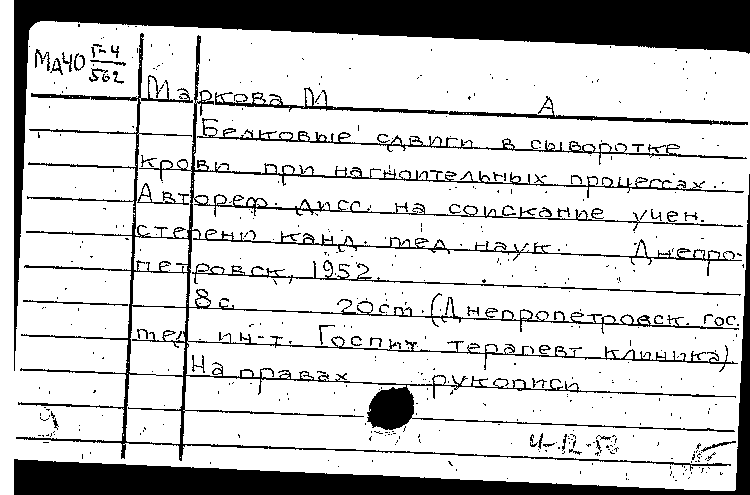 МА40 Г-4
562
Маркова, М А
Белковые сдвиги в сыворотке
крови при нагноительных процессах.
Автореф. дисс. на соискание учен.
степени канд. мед. наук. Днепро-
петровск, 1952.
8 с. 20 см. (Днепропетровск. гос.
мед. ин-т. Госпит. терапевт. клиника)
На правах рукописи
9